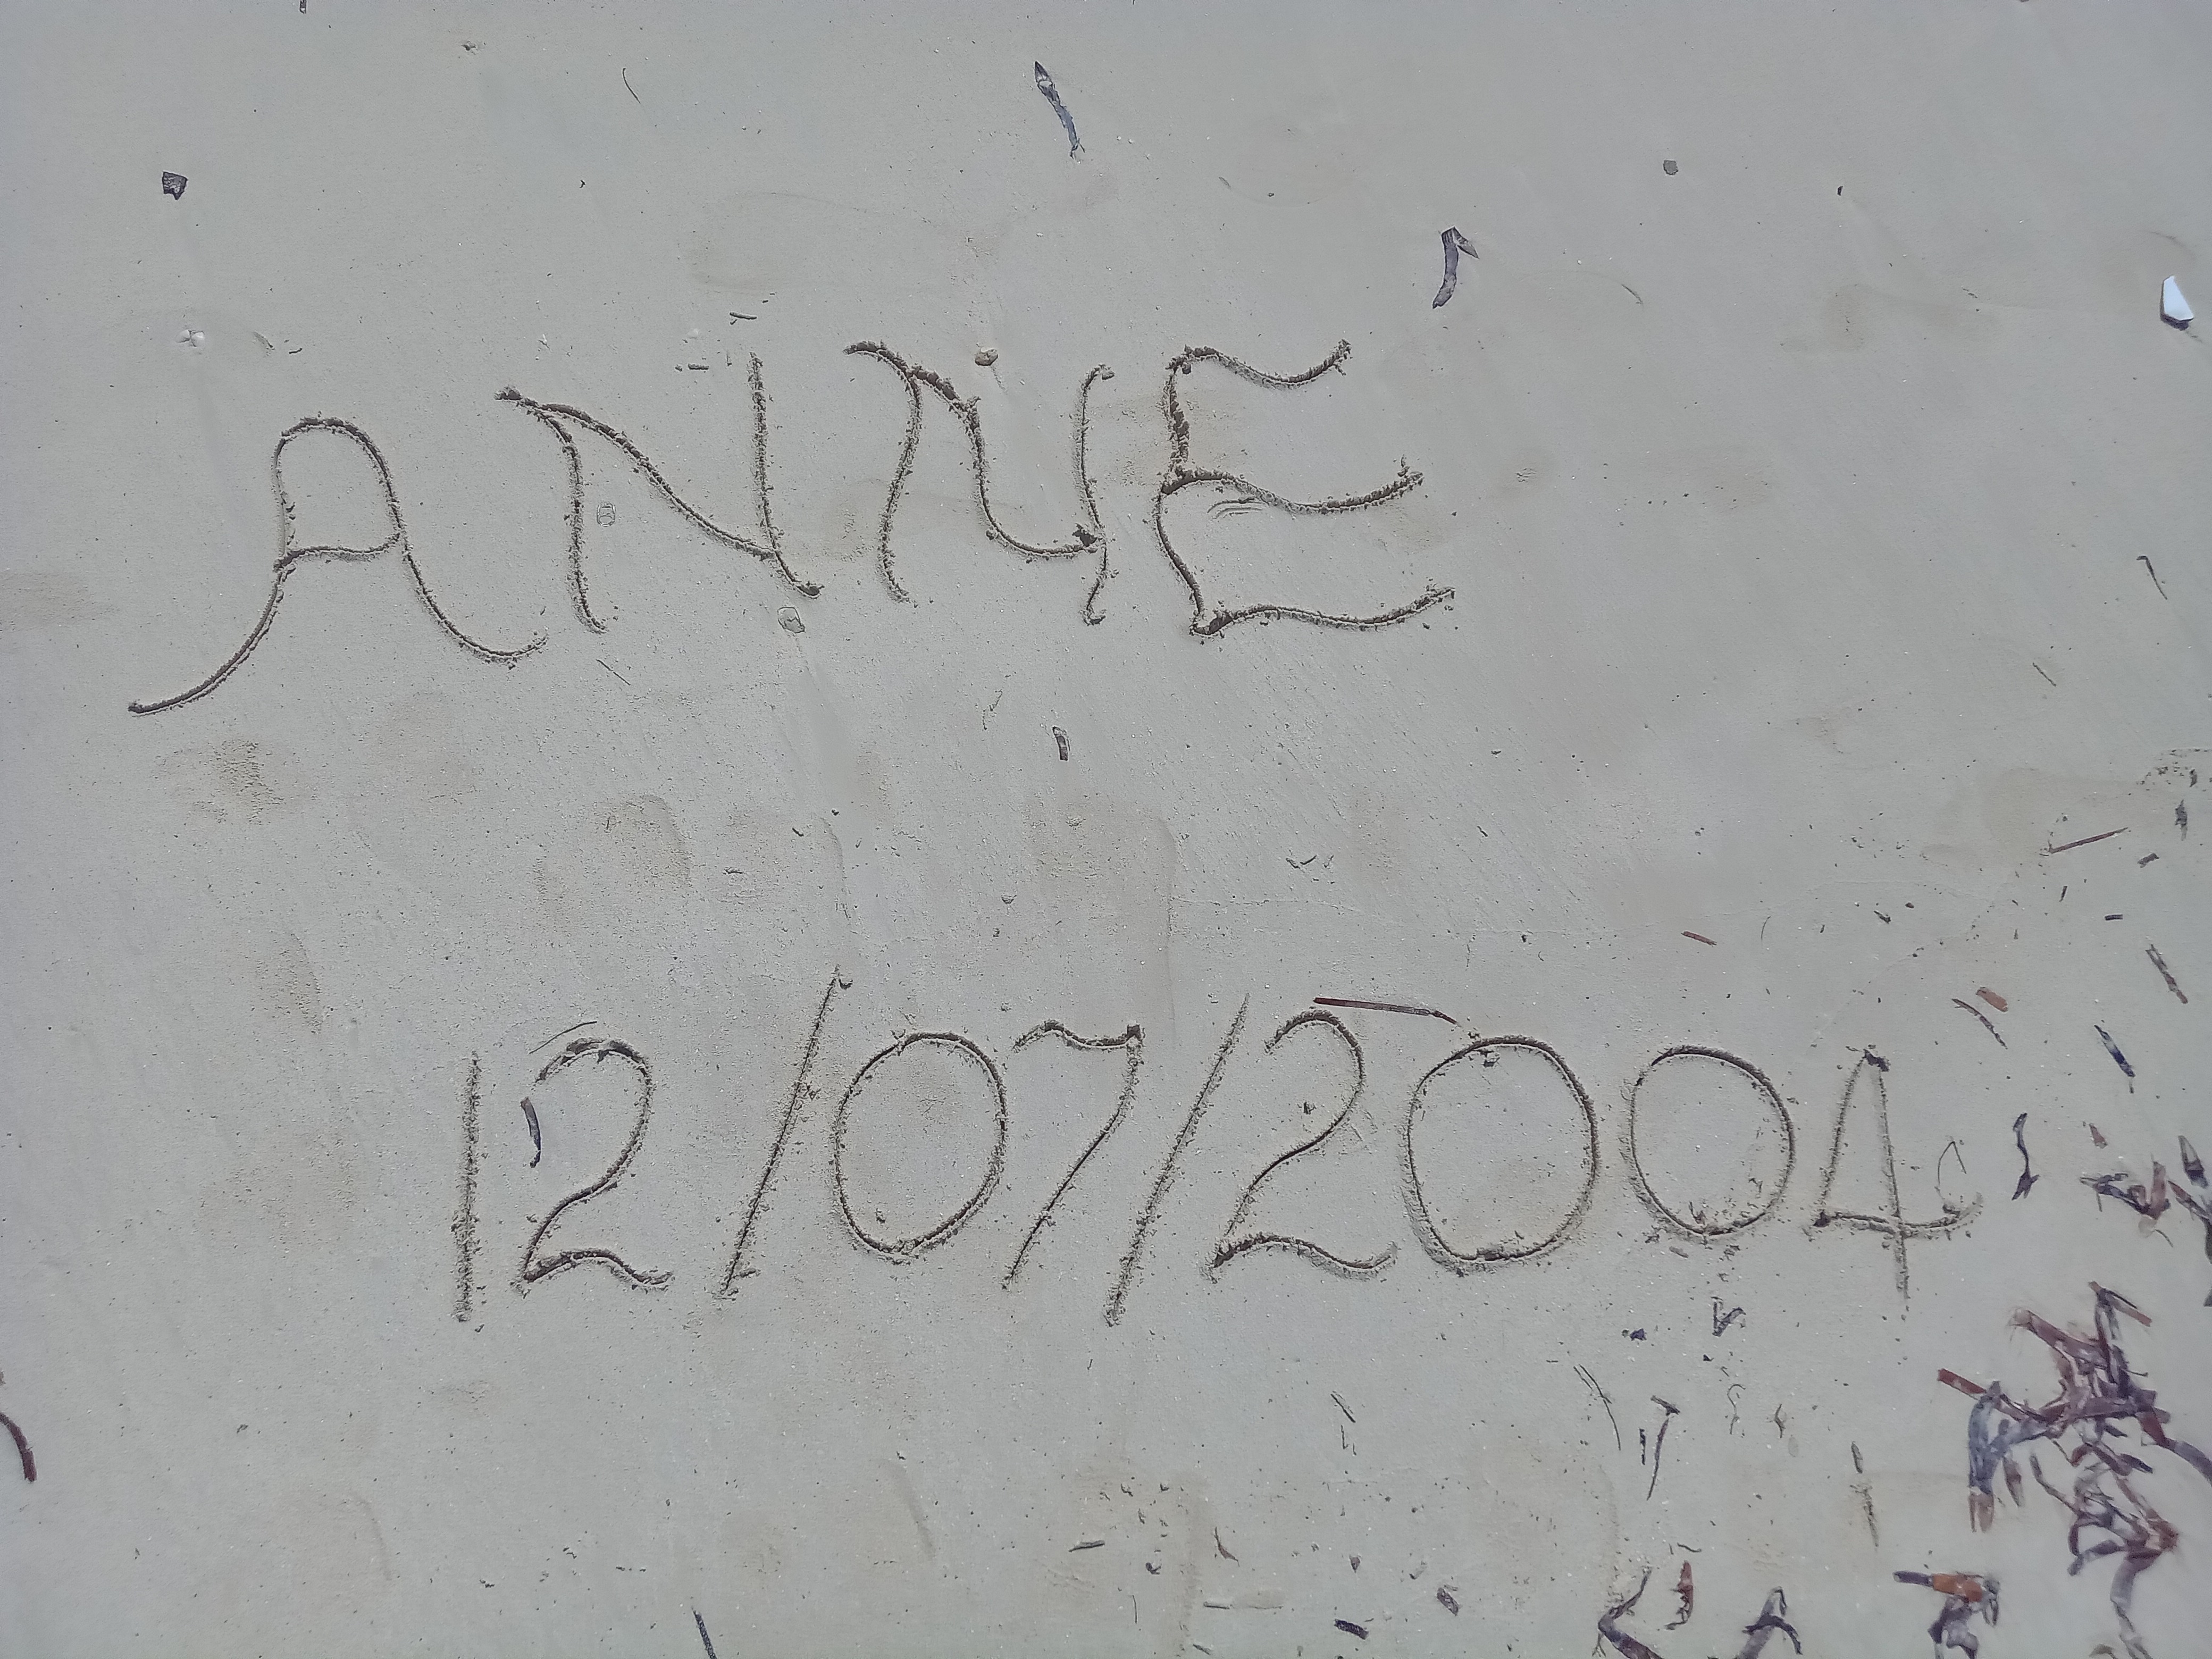 ANNE
12/07/2004